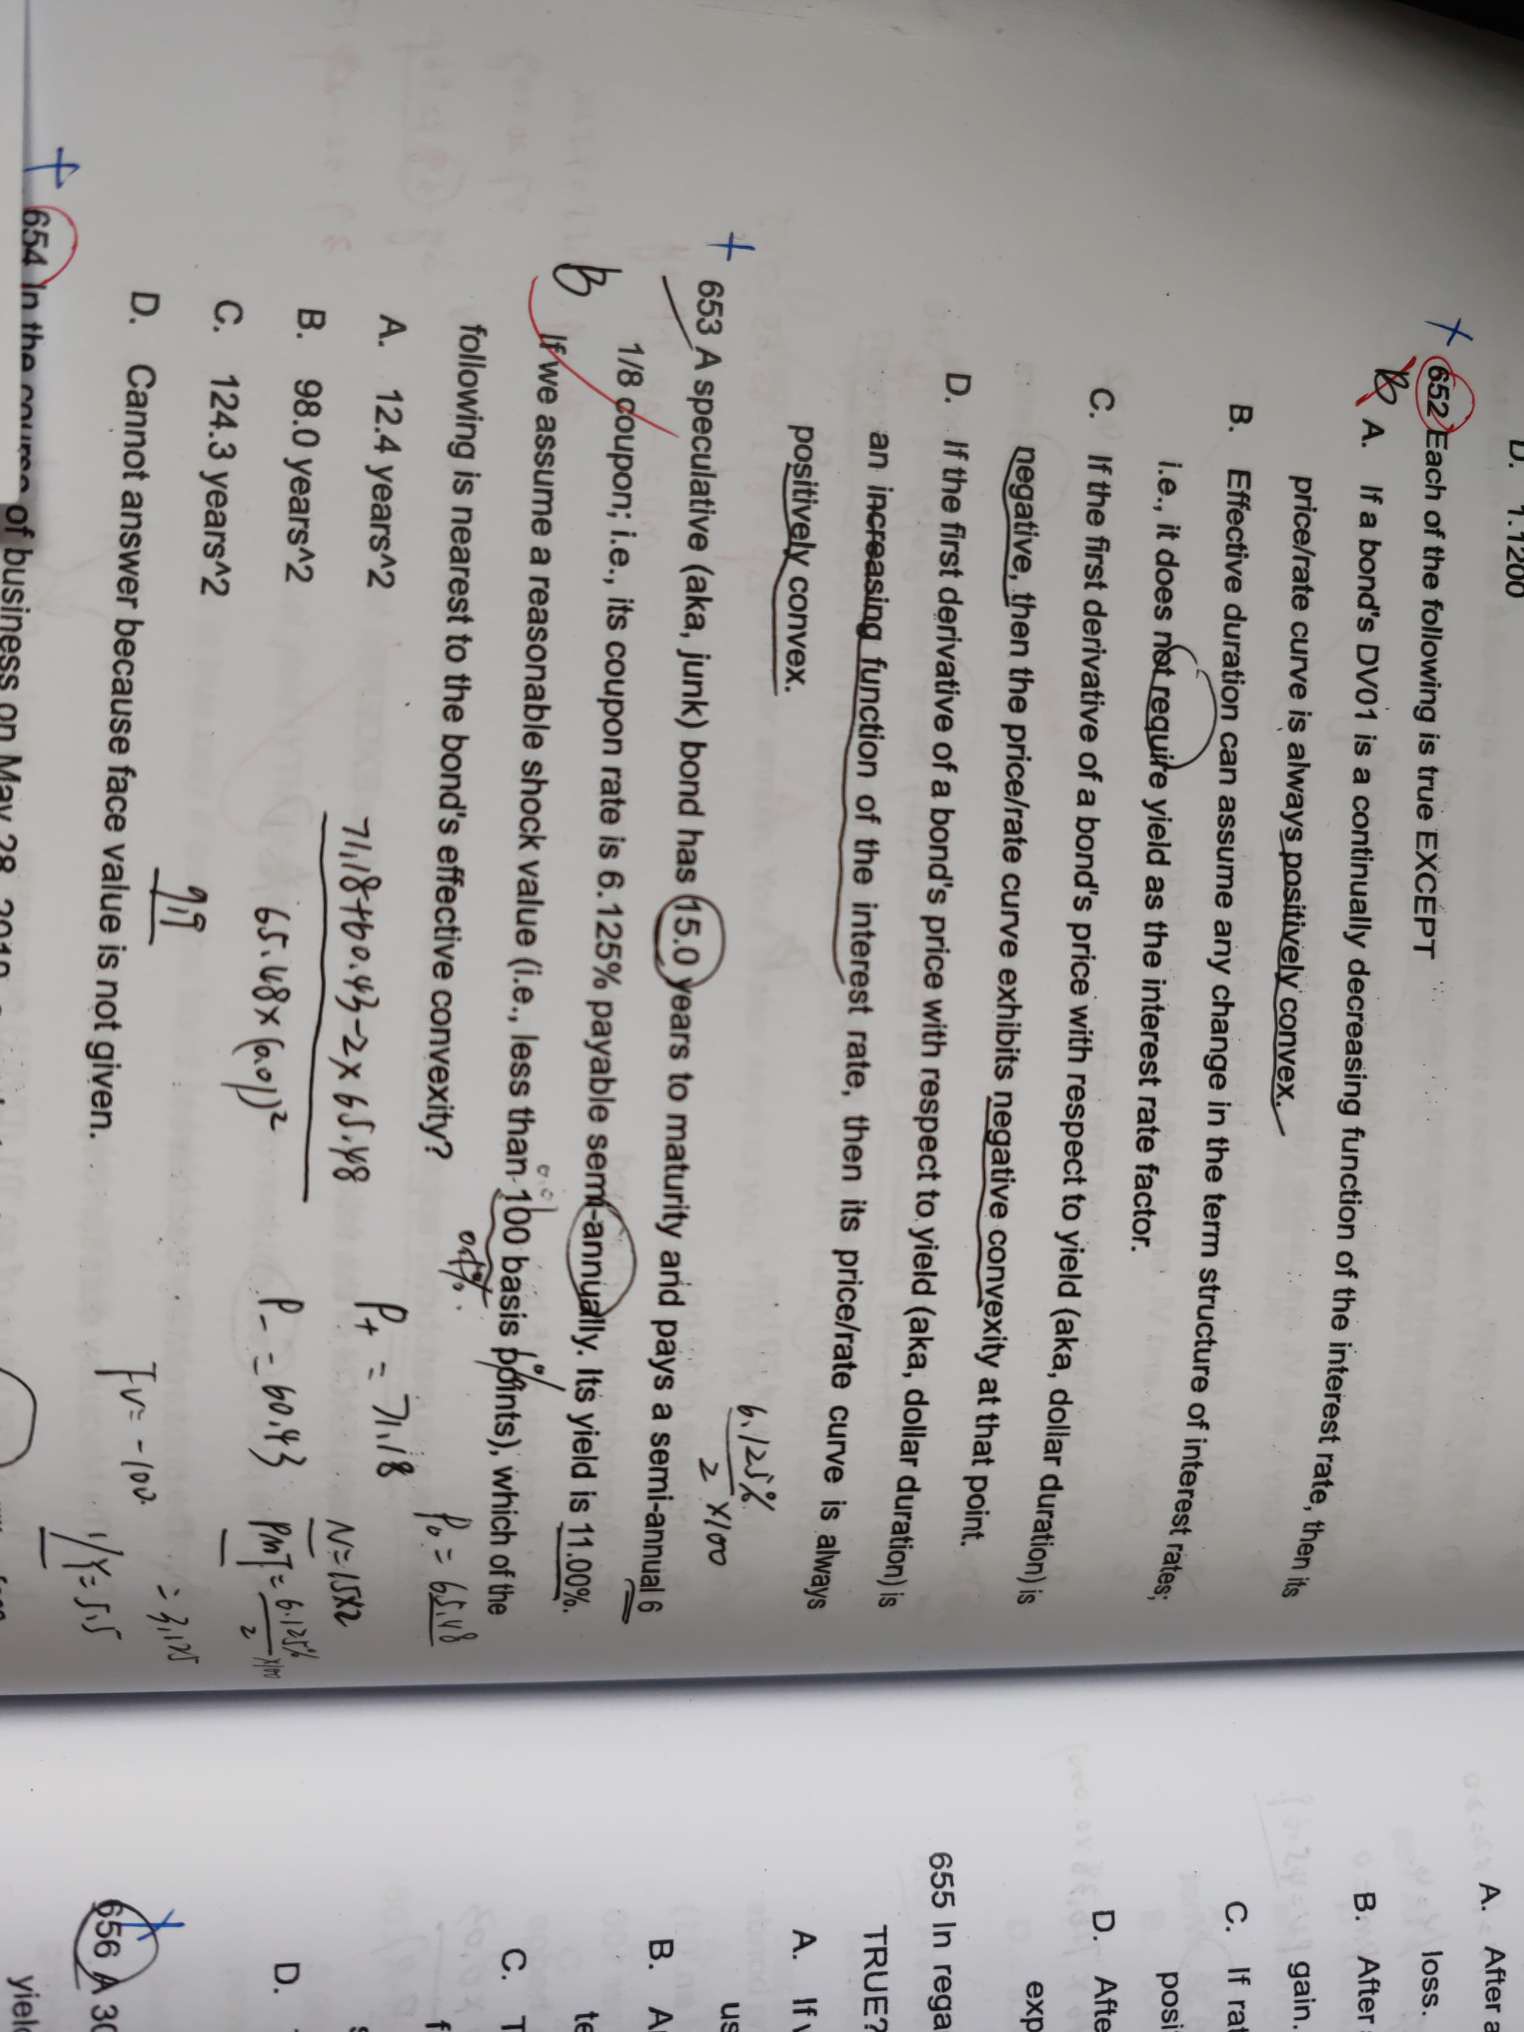 D. 1.1200
652 Each of the following is true EXCEPT
B A. If a bond's DV01 is a continually decreasing function of the interest rate, then its
price/rate curve is always positively convex.
B. Effective duration can assume any change in the term structure of interest rates;
i.e., it does not require yield as the interest rate factor.
C. If the first derivative of a bond's price with respect to yield (aka, dollar duration) is
negative, then the price/rate curve exhibits negative convexity at that point.
D. If the first derivative of a bond's price with respect to yield (aka, dollar duration) is
an increasing function of the interest rate, then its price/rate curve is always
positively convex.
6.125%
2 ×100
653 A speculative (aka, junk) bond has 15.0 years to maturity and pays a semi-annual 6
B 1/8 coupon; i.e., its coupon rate is 6.125% payable semi-annually. Its yield is 11.00%.
0.01 1%
If we assume a reasonable shock value (i.e., less than 100 basis points), which of the
0.1%.
following is nearest to the bond's effective convexity?
P0 = 65.48
A. 12.4 years^2
71.18+60.43-2×65.48
P+ = 71.18
N=15×2
B. 98.0 years^2
65.48×(0.01)²
P- = 60.43
PMT = 6.125%
2 ×100
= 3.125
C. 124.3 years^2
99
FV = -100
I/Y = 5.5
D. Cannot answer because face value is not given.
654 In the course of business on May 28, 2019
A. After a
loss.
B. After
gain.
C. If rat
posi
D. Afte
exp
655 In rega
TRUE?
A. If
us
B. A
te
C. T
f
D.
656 A 30
yield